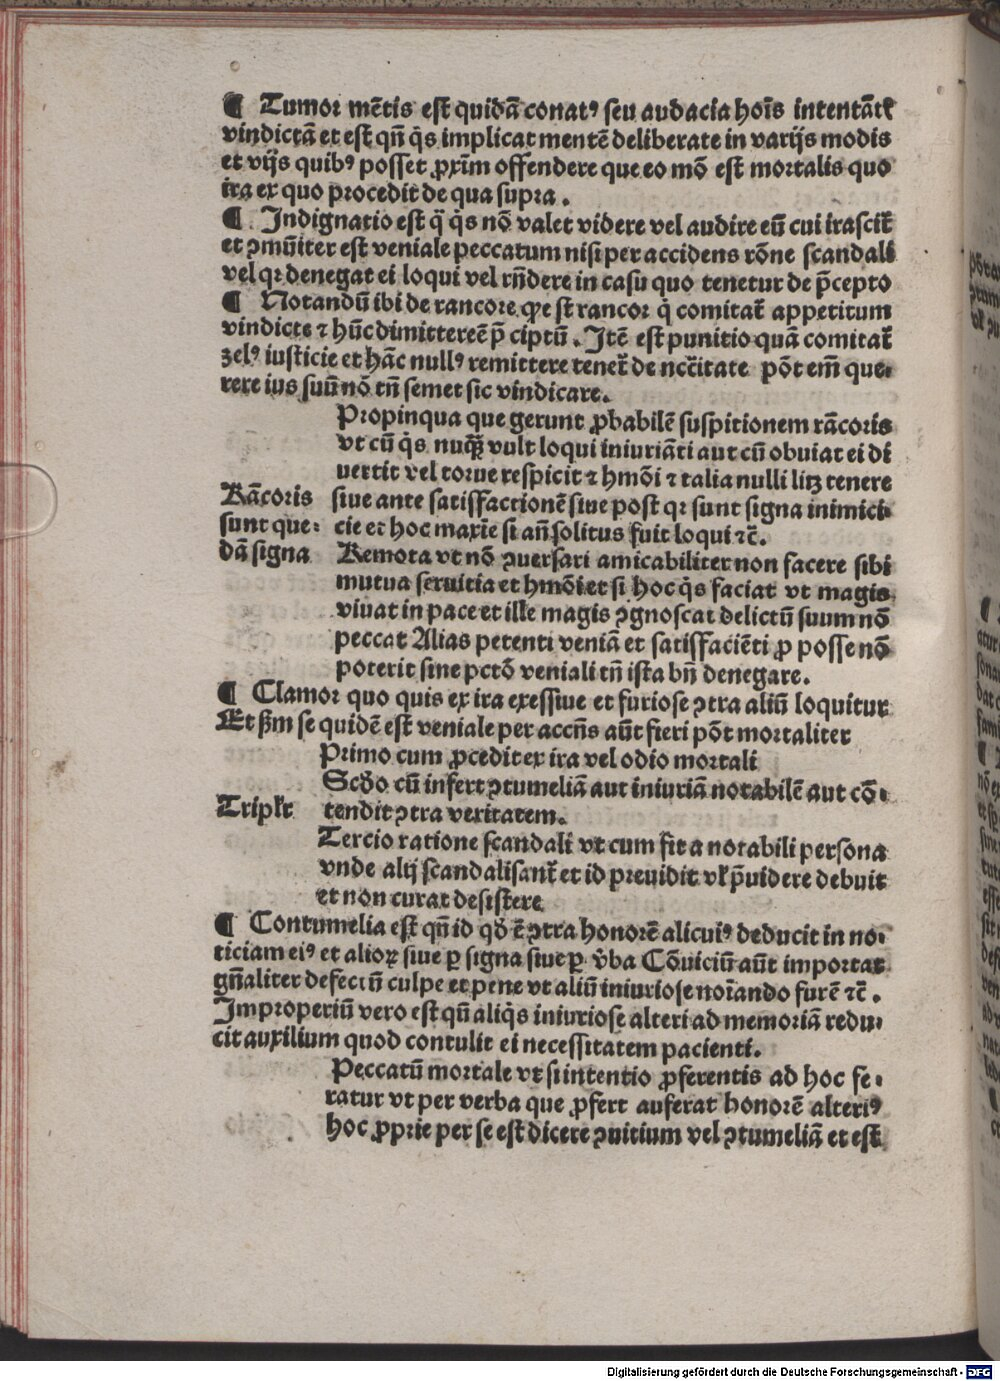 ¶ Tumor mētis est quidā conatꝰ seu audacia hoīs intentātꝭ
vindictā et est qn̄ q̇s implicat mentē deliberate in varijs modis
et vijs quibꝰ posset ꝓxīm offendere que eo mō est mortalis quo
ira ex quo procedit de qua supra.
¶ Indignatio est q̄ q̇s nō valet videre vel audire eū cui irascit̄
et ꝯmūiter est veniale peccatum nisi per accidens rōne scandali
vel qꝛ denegat ei loqui vel rn̄dere in casu quo tenetur de p̄cepto
¶ Notandū ibi de rancore ꝓe st rancor q̇ comitat̄ appetitum
vindicte ⁊ hūc dimittere ē p̄ ciptū. Itē est punitio quā comitat̄
zelꝰ iusticie et hāc nullꝰ remittere tenet̄ de nc̄citate pōt em̄ que-
rere ius suū nō tn̄ semet sic vindicare.
Propinqua que gerunt ꝓbabilē suspitionem rācoris
vt cū q̇s nuqꝫ̄ vult loqui iniuriāti aut cū obuiat ei di
uertit vel torue respicit ⁊ hmōi ⁊ talia nulli litꝫ tenere
Rācoris siue ante satisfactionē siue post qꝛ sunt signa inimici-
sunt que- cie et hoc maxīe si an̄ solitus fuit loqui ⁊c̄.
dā signa Remota vt nō ꝯuersari amicabiliter non facere sibi
mutua seruitia et hmōi et si hoc q̇s faciat vt magis
viuat in pace et ille magis ꝯgnoscat delictū suum nō
peccat Alias petenti veniā et satisfaciēti ꝓ posse nō
poterit sine pctō veniali tn̄ ista bn̄ denegare.
¶ Clamor quo quis ex ira exessiue et furiose ꝯtra aliū loquitur
Et ẜm se quidē est veniale per accn̄s aūt fieri pōt mortaliter
Primo cum ꝓcedit ex ira vel odio mortali
Scḋo cū infert ꝯtumeliā aut iniuriā notabilē aut cō-
Triplꝛ tendit ꝯtra veritatem.
Tercio ratione scandali vt cum fit a notabili persona
vnde alij scandalisant̄ et id preuidit vl̄ p̄uidere debuit
et non curat desistere
¶ Contumelia est qn̄ id qḋ ē ꝯtra honorē alicuiꝰ deducit in no-
ticiam eiꝰ et alioꝝ siue ꝑ signa siue ꝑ v̇ba Cōuiciū aūt importat
gn̄aliter defectū culpe et pene vt aliū iniuriose noīando furē ⁊c̄.
Improperiū vero est qn̄ aliq̇s iniuriose alteri ad memoriā redu-
cit auxilium quod contulit ei necessitatem pacienti.
Peccatū mortale vt si intentio ꝓferentis ad hoc fe-
ratur vt per verba que ꝓfert auferat honorē alteriꝰ
hoc ꝓprie per se est dicere ꝯuitium vel ꝯtumeliā et est
Digitalisierung gefördert durch die Deutsche Forschungsgemeinschaft - DFG